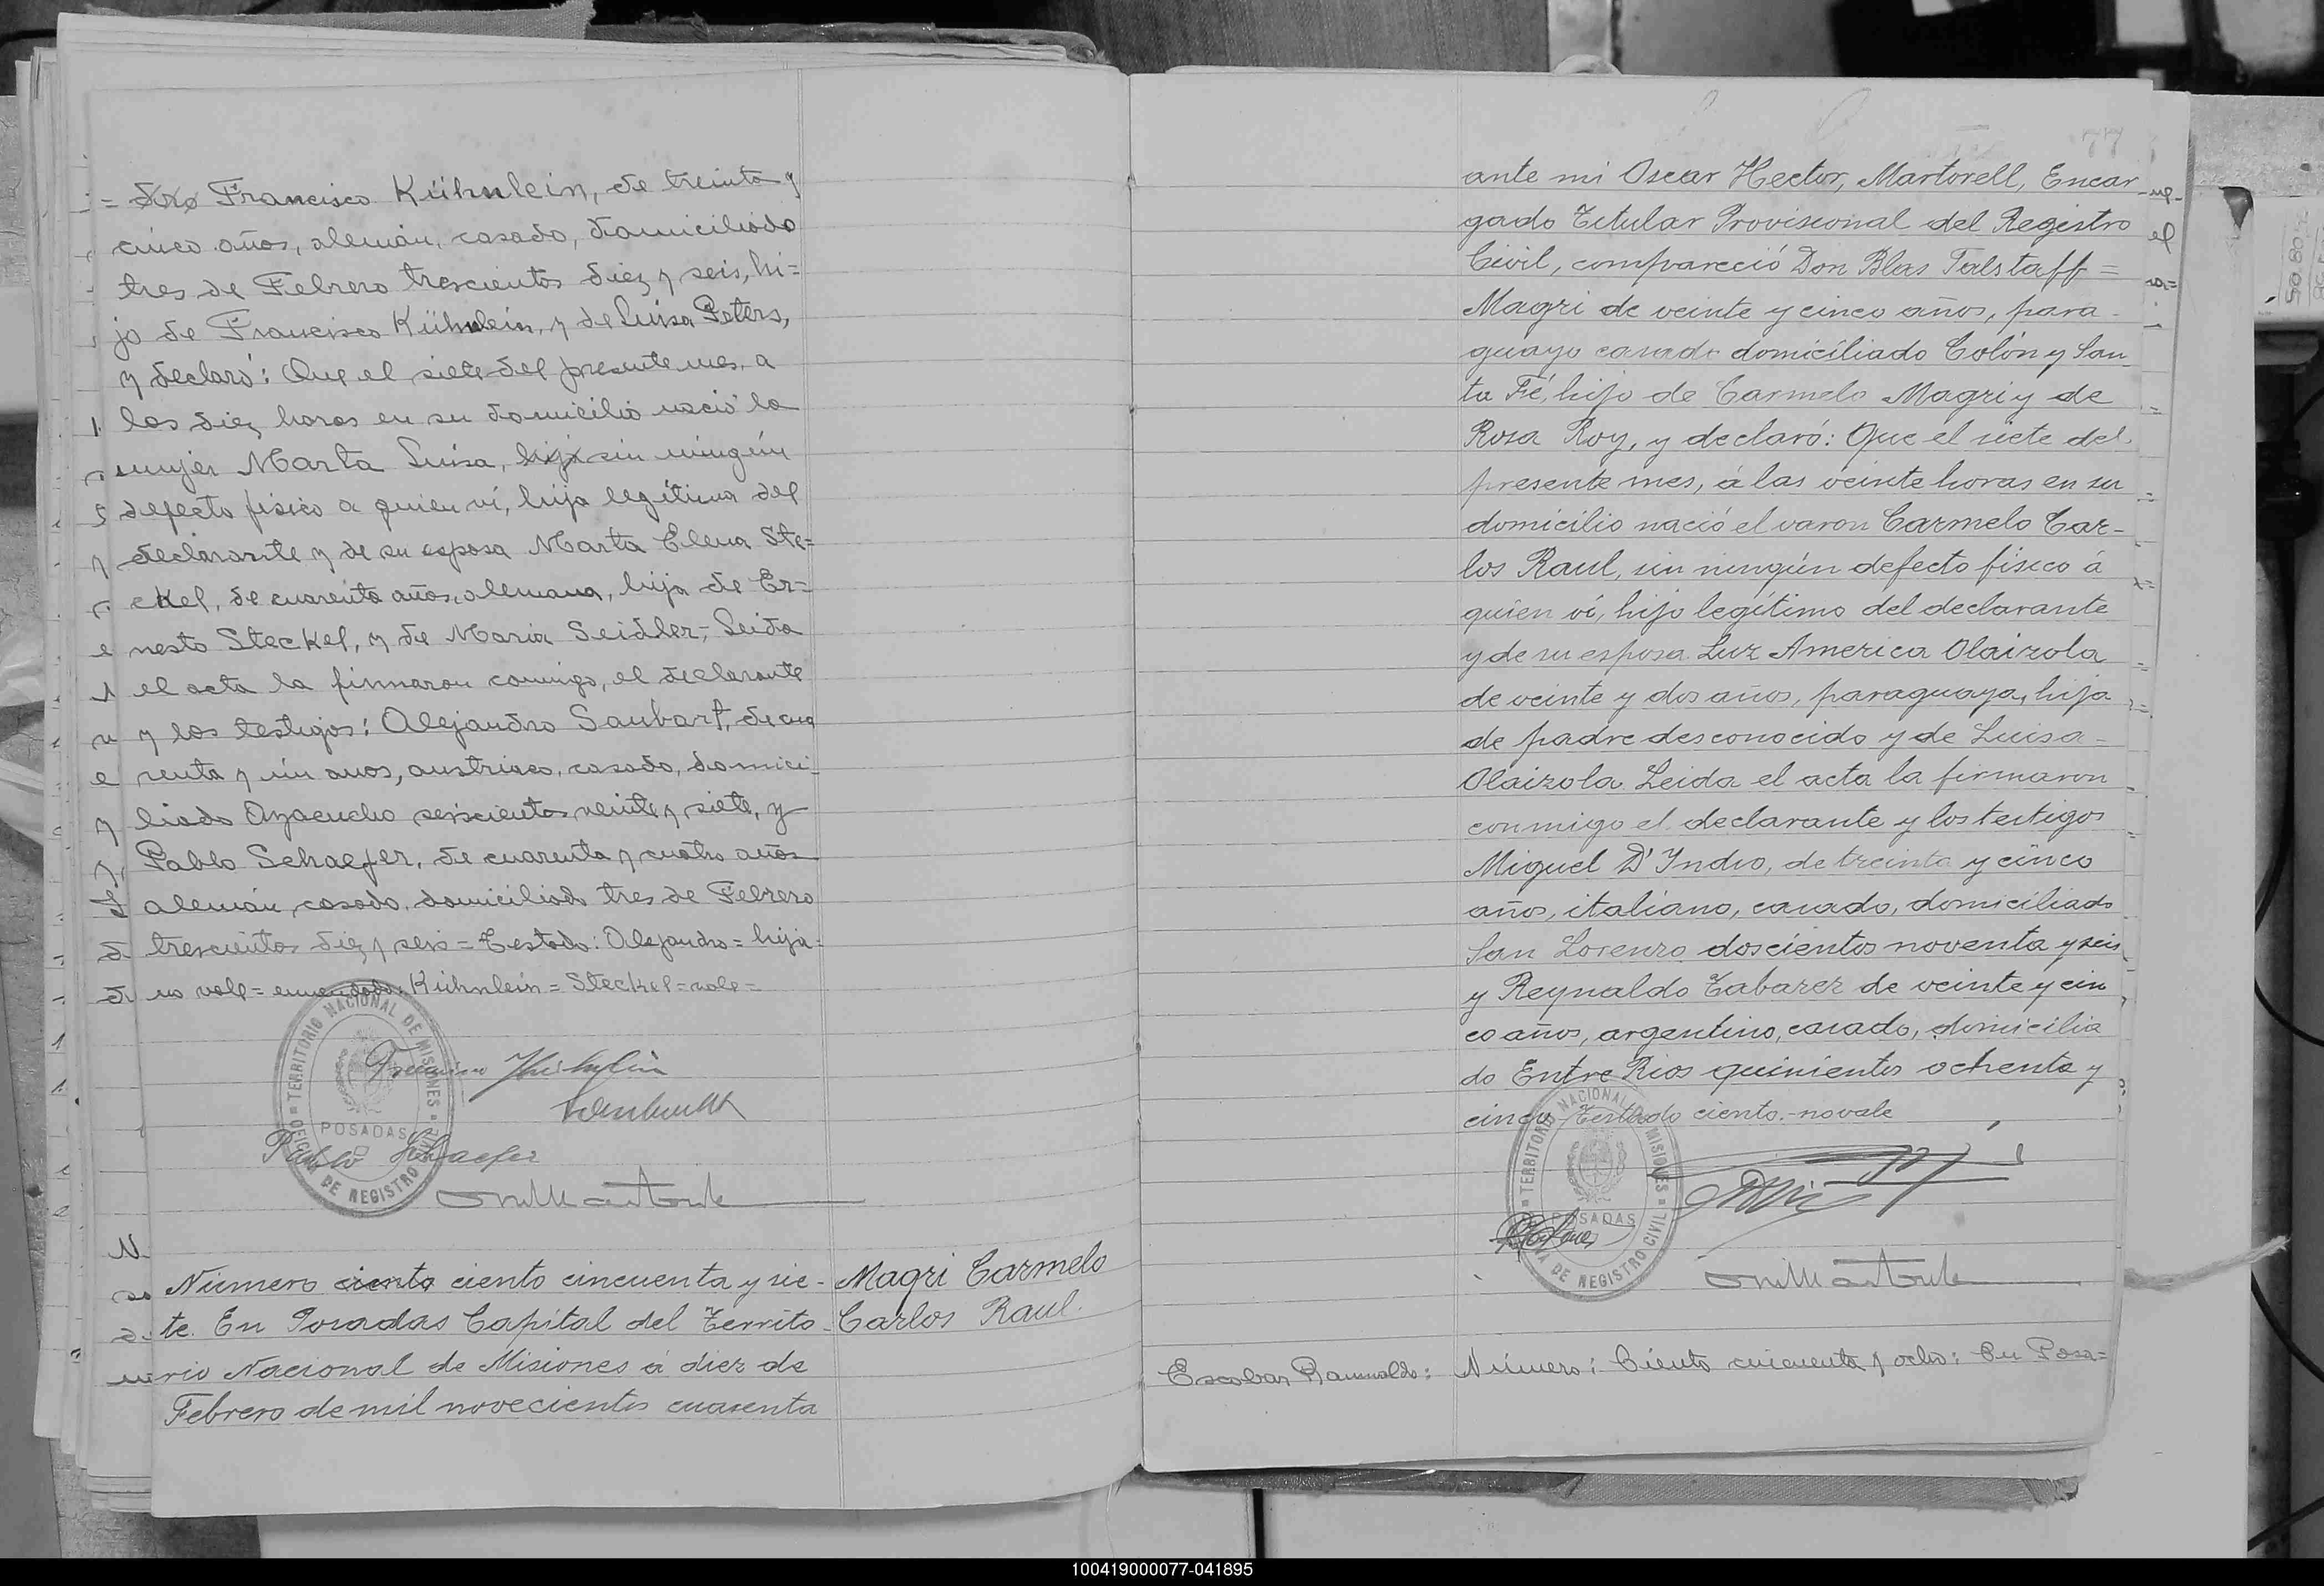 = dro Francisco Kühnlein, de treinta y
cinco años, alemán, casado, domiciliado
tres de Febrero trescientos diez y seis, hi=
jo de Francisco Kühnlein, y de Luisa Peters,
y declaró: Que el siete del presente mes, a
las diez horas en su domicilio nació la
mujer Marta Luisa, hija sin ningún
defecto físico a quien ví, hija legítima del
declarante y de su esposa Marta Elena Ste=
ckel, de cuarenta años, alemana, hija de Er=
nesto Steckel, y de Maria Seidler; Leida
el acta la firmaron conmigo, el declarante
y los testigos: Alejandro, de cua
renta y un anos, austriaco, casado, domici-
liado Ayacucho seiscientos veinte y siete, y
Pablo Schaefer, de cuarenta y cuatro años
alemán, casado, domiciliado tres de Febrero
trescientos diez y seis = Testado: Alejandro = hija =
no vale = enmendado: Kühnlein = Steckel = vale =
TERRITORIO NACIONAL DE MISIONES
POSADAS
OFICINA DE REGISTRO CIVIL
Pablo Schaefer
Número ciento ciento cincuenta y sie-
te. En Posadas Capital del Territo-
rio Nacional de Misiones á diez de
Febrero de mil novecientos cuarenta
Magri Carmelo
Carlos Raul.
77
ante mi Oscar Hector, Martorell, Encar-
gado Titular Provisional del Registro
Civil, compareció Don Blas Falstaff =
Magri de veinte y cinco años, para-
guayo casado domiciliado Colón y San-
ta Fé, hijo de Carmelo Magri y de
Rosa Roy, y declaró: Que el siete del
presente mes, á las veinte horas en su
domicilio nació el varon Carmelo Car-
los Raul, sin ningún defecto físico á
quien ví, hijo legítimo del declarante
y de su esposa Luz America Olaizola
de veinte y dos años, paraguaya, hija
de padre desconocido y de Luisa-
Olaizola. Leida el acta la firmaron
conmigo el declarante y los testigos
Miguel D'Indio, de treinta y cinco
años, italiano, casado, domiciliado
San Lorenzo doscientos noventa y seis
y Reynaldo Tabarez de veinte y cin
co años, argentino, casado, domicilia
do Entre Rios quinientos ochenta y
cinco Testado ciento.-no vale
TERRITORIO NACIONAL DE MISIONES
POSADAS
OFICINA DE REGISTRO CIVIL
Escobar Ramualdo: Número: Ciento cincuenta y ocho: En Posa=
100419000077-041895